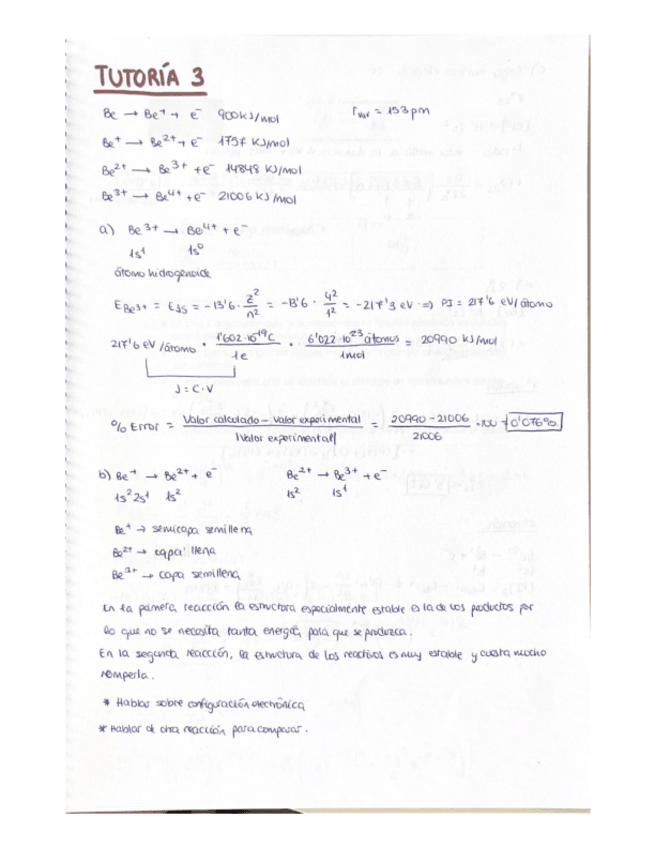 TUTORÍA 3
Be → Be⁺ + e⁻ 900 kJ/mol r = 153 pm
Be⁺ → Be²⁺ + e⁻ 1757 KJ/mol
Be²⁺ → Be³⁺ + e⁻ 14848 KJ/mol
Be³⁺ → Be⁴⁺ + e⁻ 21006 KJ/mol
a) Be³⁺ → Be⁴⁺ + e⁻
1s¹ 1s⁰
átomo hidrogenoide
E Be³⁺ = E1s = -13'6 · Z²/n² = -13'6 · 4²/1² = -217'3 eV ⇒ PI = 217'6 eV/átomo
217'6 eV/átomo · 1'602·10⁻¹⁹C/1e · 6'022·10²³ átomos/1mol = 20990 KJ/mol
J = C·V
% Error = Valor calculado - Valor experimental/|Valor experimental| = 20990 - 21006/21006 ·100 = 0'076%
b) Be⁺ → Be²⁺ + e⁻ Be²⁺ → Be³⁺ + e⁻
1s² 2s¹ 1s² 1s² 1s¹
Be⁺ → semicapa semillena
Be²⁺ → capa llena
Be³⁺ → capa semillena
En la primera reacción la estructura especialmente estable es la de los productos por
lo que no se necesita tanta energía para que se produzca.
En la segunda reacción, la estructura de los reactivos es muy estable y cuesta mucho
romperla.
* Hablar sobre configuración electrónica
* Hablar de otra reacción para comparar.